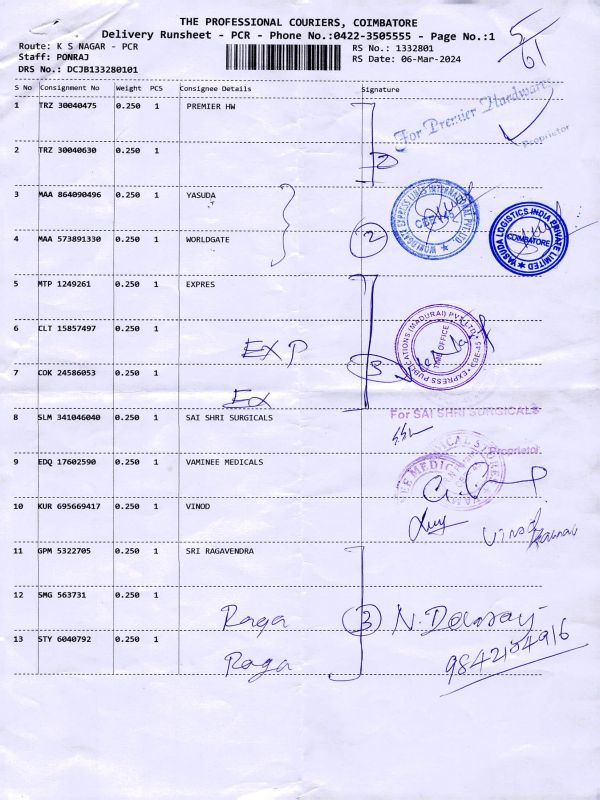 THE PROFESSIONAL COURIERS, COIMBATORE
Delivery Runsheet - PCR - Phone No.:0422-3505555 - Page No.:1
Route: K S NAGAR - PCR
RS No.: 1332801
Staff: PONRAJ
RS Date: 06-Mar-2024
DRS No.: DCJB133280101
5/61
S No Consignment No Weight PCS Consignee Details Signature
1 TRZ 30040475 0.250 1 PREMIER HW
For Premier Hardwares
Proprietor
2 TRZ 30040630 0.250 1
2
3 MAA 864090496 0.250 1 YASUDA
WORLDGATE EXPRESS LINES INTERNATIONAL PVT.LTD.
4 MAA 573891330 0.250 1 WORLDGATE
2
YASUDA LOGISTICS INDIA PRIVATE LIMITED
COIMBATORE
5 MTP 1249261 0.250 1 EXPRES
EXPRESS PUBLICATIONS (MADURAI) PVT.LTD
TIME OFFICE
6 CLT 15857497 0.250 1
EXP
7 COK 24586053 0.250 1
3
Ex
8 SLM 341046040 0.250 1 SAI SHRI SURGICALS
For SAI SHRI SURGICALS
Proprietor
9 EDQ 17602590 0.250 1 VAMINEE MEDICALS
10 KUR 695669417 0.250 1 VINOD
11 GPM 5322705 0.250 1 SRI RAGAVENDRA
12 SMG 563731 0.250 1
Raga
3
13 STY 6040792 0.250 1
Raga